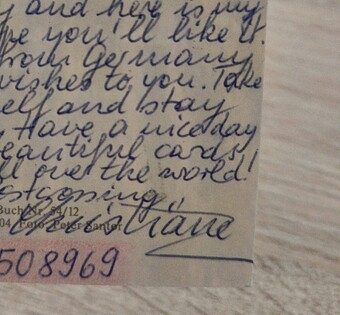 y and here is my
pe you'll like it.
from Germany
wishes to you. Take
elf and stay
Have a nice day
eautiful cards
ll over the world!
ostcrossing
Buch Nr. 54/12
04, Foto: Peter Santor
Christiane
508969